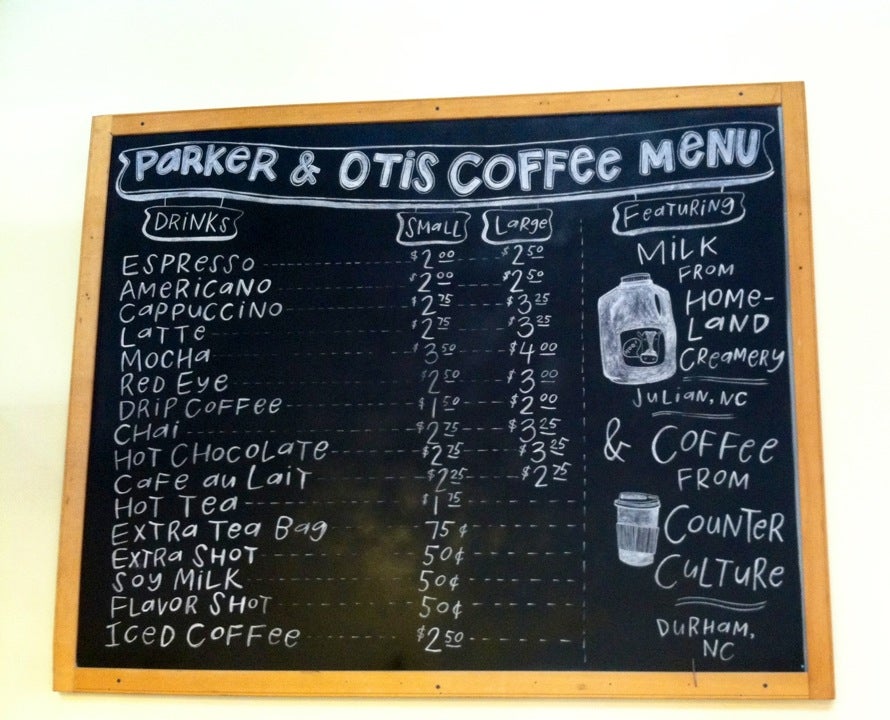 PARKER & OTIS COFFEE MENU
DRINKS SMALL LARGE
ESPRESSO $2.00 $2.50
AMERICANO $2.00 $2.50
CAPPUCCINO $2.75 $3.25
LATTE $2.75 $3.25
MOCHA $3.50 $4.00
RED EYE $2.50 $3.00
DRIP COFFEE $1.50 $2.00
CHAI $2.75 $3.25
HOT CHOCOLATE $2.75 $3.25
CAFE AU LAIT $2.25 $2.75
HOT TEA $1.75
EXTRA TEA BAG 75¢
EXTRA SHOT 50¢
SOY MILK 50¢
FLAVOR SHOT 50¢
ICED COFFEE $2.50
FEATURING
MILK
FROM
HOME-
LAND
CREAMERY
JULIAN, NC
& COFFEE
FROM
COUNTER
CULTURE
DURHAM,
NC